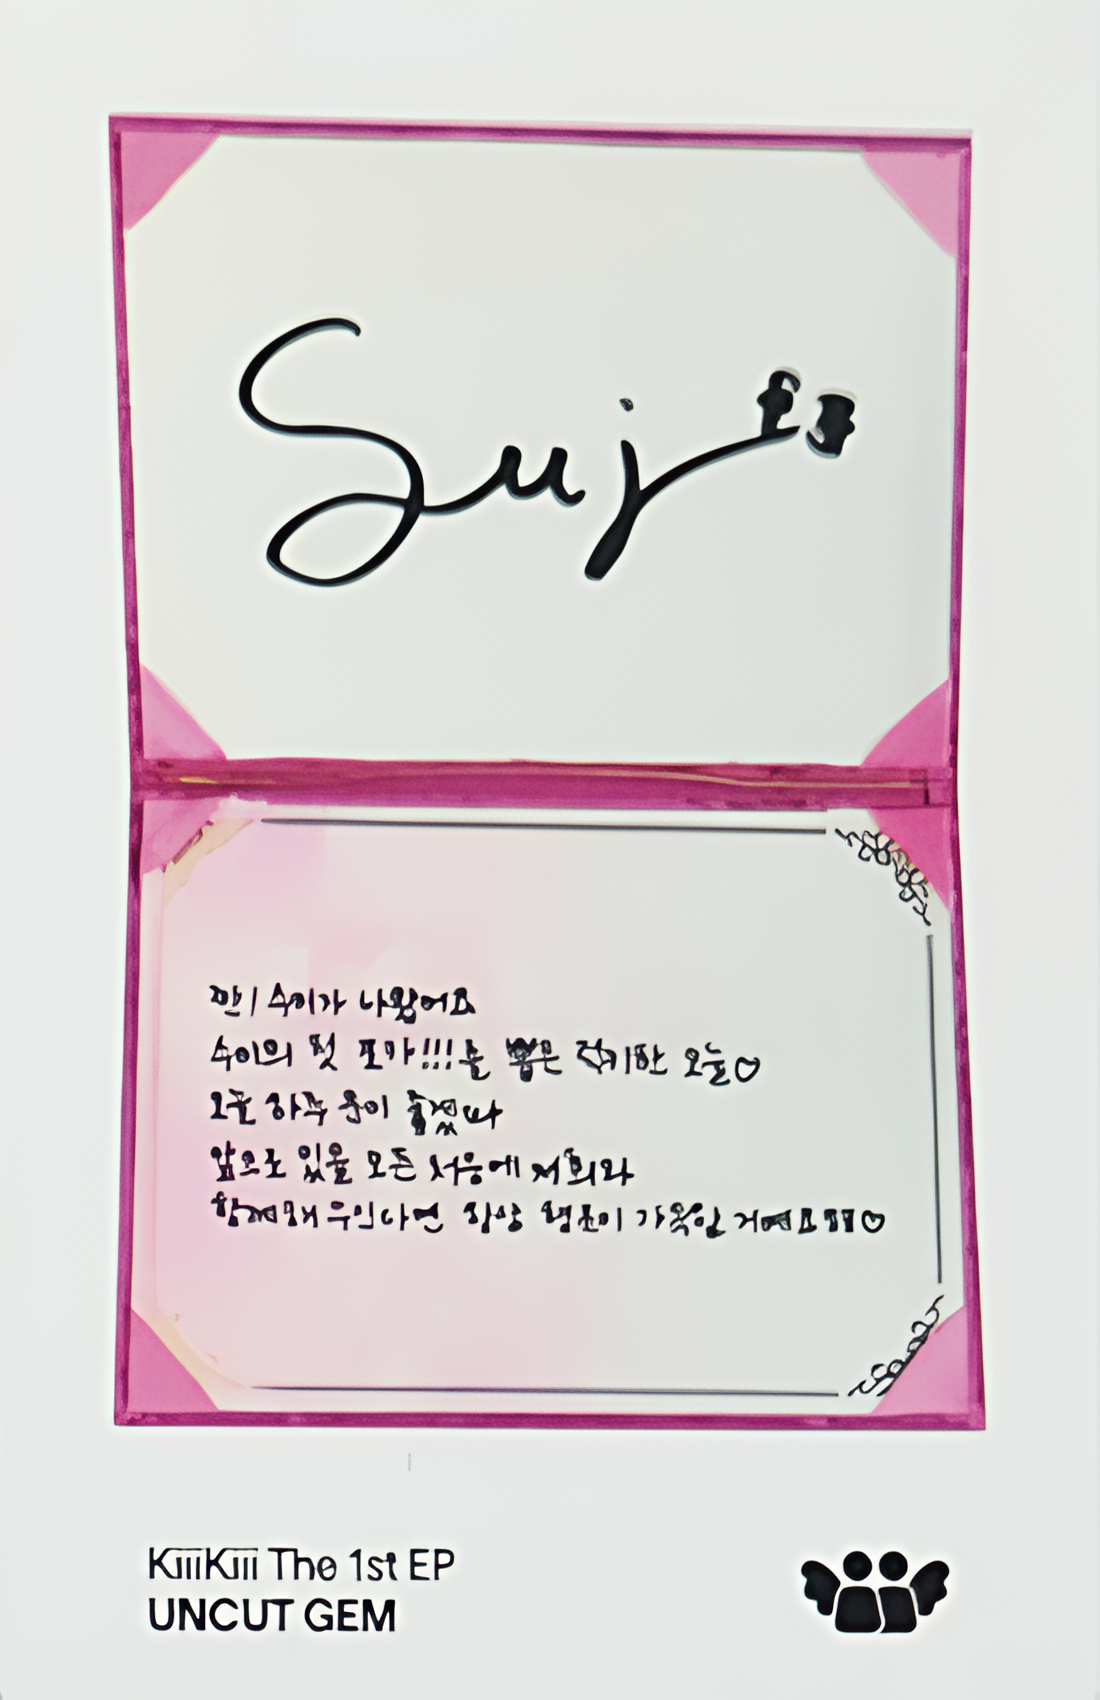 Sui
짠! 수이가 나왔어요
수이의 첫 포카!!!를 뽑은 오늘♡
오늘 하루 운이 좋겠다
앞으로 있을 모든 처음에 저희와
함께해 항상 행운이 가득할 거예요
KiiiKiii The 1st EP
UNCUT GEM